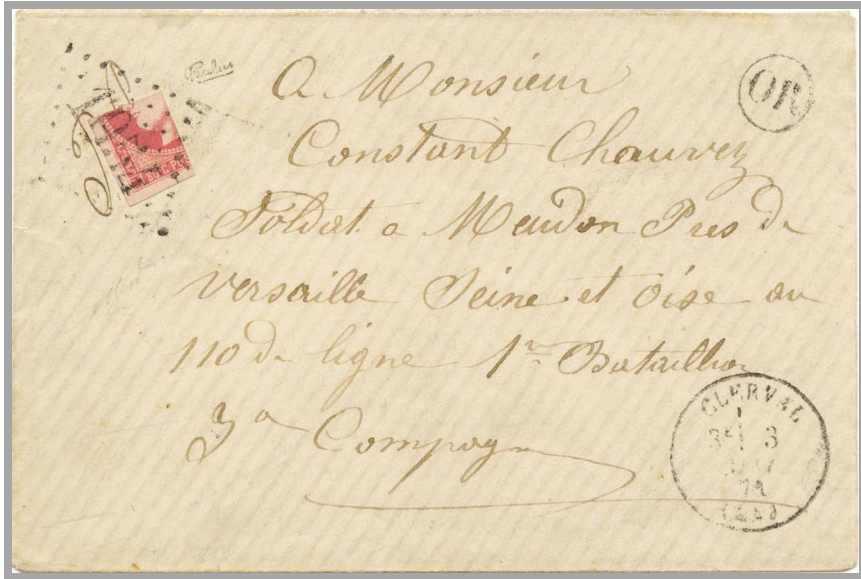 OR
A Monsieur
Constant Chauvey
Soldat a Meudon Pres de
versaille Seine et Oise au
110 de ligne 1r Bataillon
3a Compagn
CLERVAL
3E 3